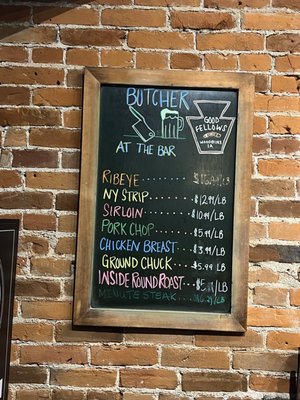 BUTCHER
AT THE BAR
GOOD
FELLOWS
WOODBINE
IA
RIBEYE
NY STRIP $12.99/LB
SIRLOIN $10.99/LB
PORK CHOP $5.99/LB
CHICKEN BREAST $3.99/LB
GROUND CHUCK $5.99 LB
INSIDE ROUND ROAST /LB
MINUTE STEAK /LB